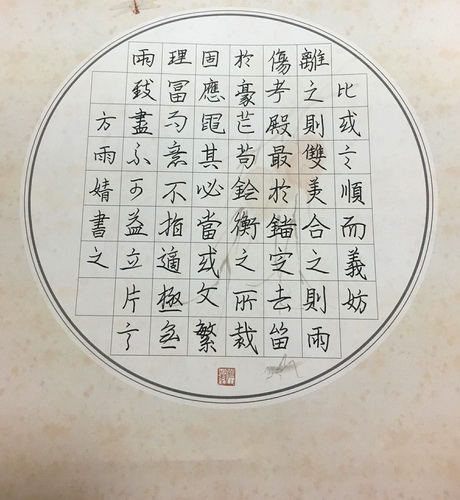 比或言順而義妨
離之則雙美合之則兩
傷考殿最於錙定去留
於豪芒苟銓衡之所裁
固應繩其必當或文繁
理冨而意不指適極無
兩致盡不可益立片言
方雨婧書之